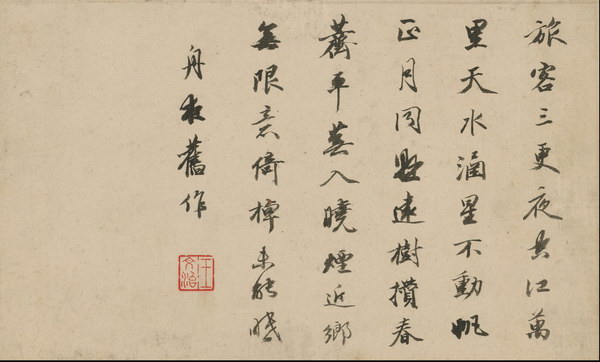 旅客三更夜長江萬
里天水涵星不動帆
正月同懸遠樹攢春
薺平蕪入曉煙近鄉
無限意倚棹未能眠
舟夜舊作
王文治